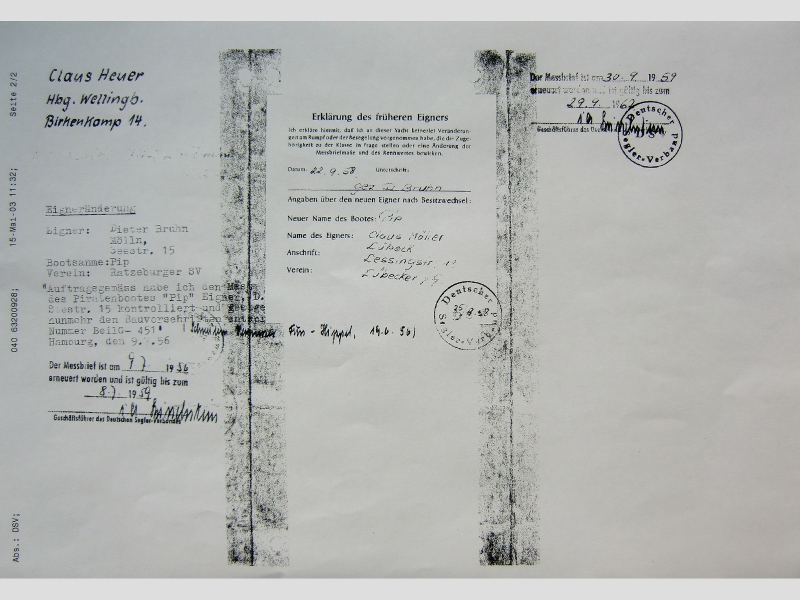 Claus Heuer
Hbg. Wellingb.
Birkenkamp 14.
Eigneränderung
Eigner: Dieter Bruhn
Mölln,
Seestr. 15
Bootsname: Pip
Verein: Ratzeburger SV
"Auftragsgemäss habe ich den
des Piratenbootes "Pip" Eigner, D.
Seestr. 15 kontrolliert und
nunmehr den Bauvorschriften
Nummer BeilG- 451
Hamburg, den 9. .56
Fim - Hippel, 14.6.56)
Der Messbrief ist am 9.7. 1956
erneuert worden und ist gültig bis zum
8.7. 1959
Geschäftsführer des Deutschen Segler-Verbandes
Erklärung des früheren Eigners
Ich erkläre hiermit, daß ich an dieser Yacht keinerlei Veränderun-
gen am Rumpf oder der Besegelung vorgenommen habe, die die Zuge-
hörigkeit zu der Klasse in Frage stellen oder eine Änderung der
Messbriefmaße und des Rennwertes bewirken.
Datum: 22.9.58 Unterschrift:
gez D. Bruhn
Angaben über den neuen Eigner nach Besitzwechsel:
Neuer Name des Bootes: Pip
Name des Eigners: Claus Möller
Lübeck
Anschrift: Lessingstr.
Verein: Lübecker
Deutscher Segler-Verband
Der Messbrief ist am 30.9. 1959
erneuert worden und ist gültig bis zum
29.9. 1962
Geschäftsführer des
Deutscher Segler-Verband
Abs.: DSV; 040 63200928; 15-Mai-03 11:32; Seite 2/2